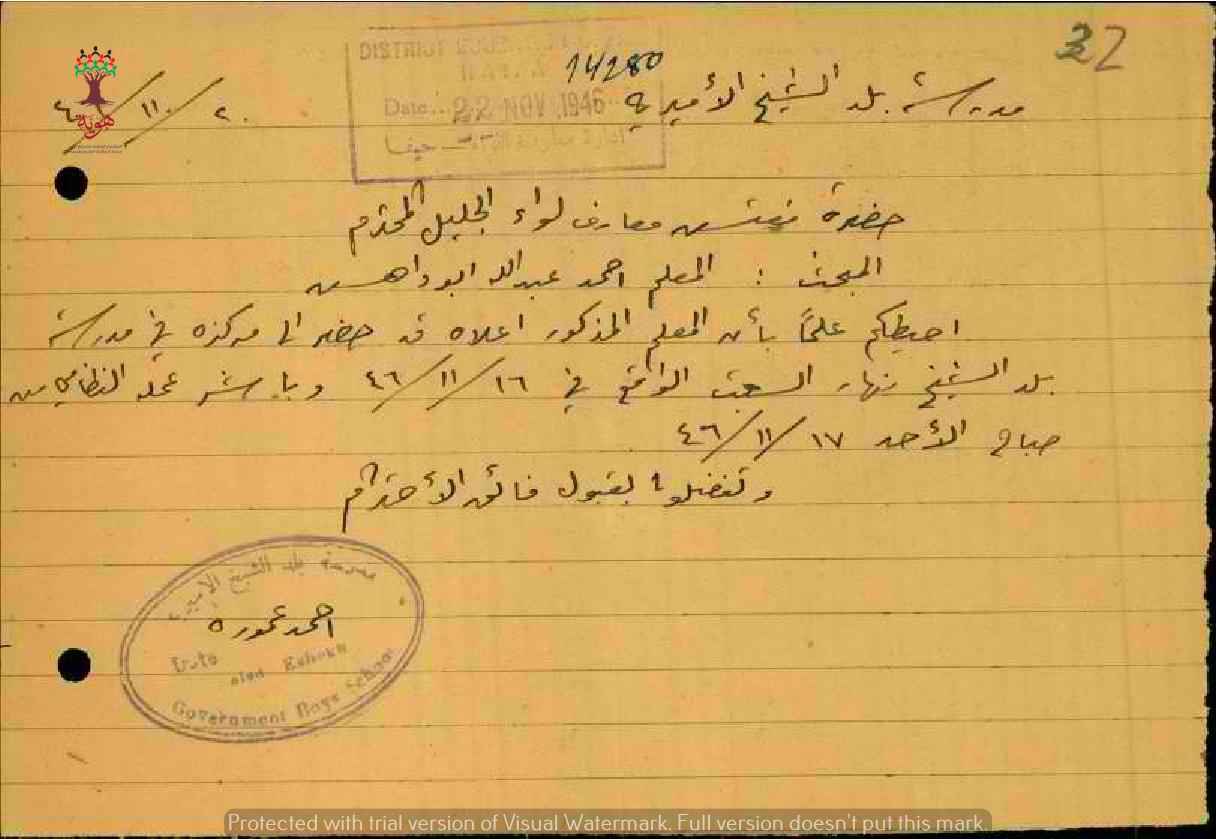 32
14280
DISTRICT
Date.. 22 NOV 1946
حيفا
مدرسة بلد الشيخ الأميرية
٢٠ / ١١ /
هوية
حضرة مفتش معارف لواء الجليل المحترم
المبحث : المعلم احمد عبدالله ابو
احيطكم علماً بأن المعلم المذكور اعلاه قد حضر الى مركزه في مدرسة
بلد الشيخ نهار السبت الواقع في ١٦ / ١١ / ٤٦ وباشر عمله النظامي من
صباح الأحد ١٧ / ١١ / ٤٦
وتفضلوا بقبول فائق الأحترام
مدرسة بلد الشيخ الاميرية
احمد عموره
Date
Government Boys School
Protected with trial version of Visual Watermark. Full version doesn't put this mark.